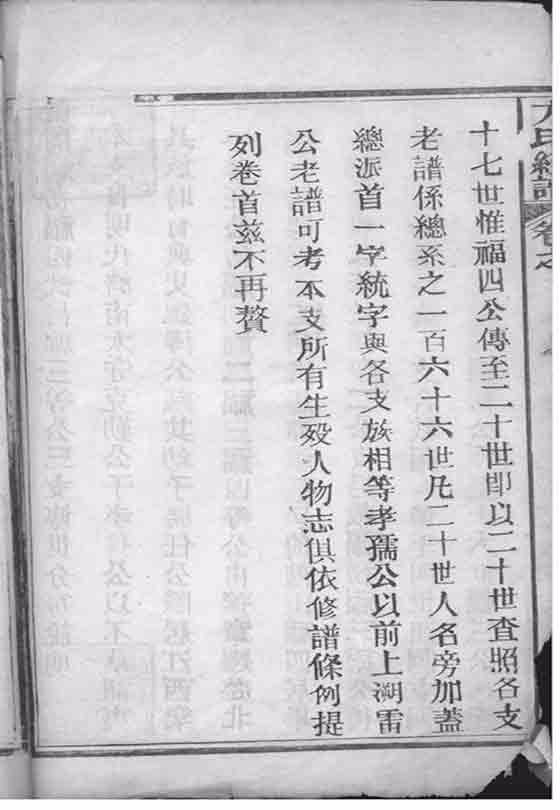 方氏總譜 卷之
十七世惟福四公傳至二十世卽以二十世查照各支
老譜係總系之一百六十六世凡二十世人名旁加蓋
總派首一字統字與各支族相等孝孺公以前上溯雷
公老譜可考本支所有生歿人物志俱依修譜條例提
列卷首玆不再贅